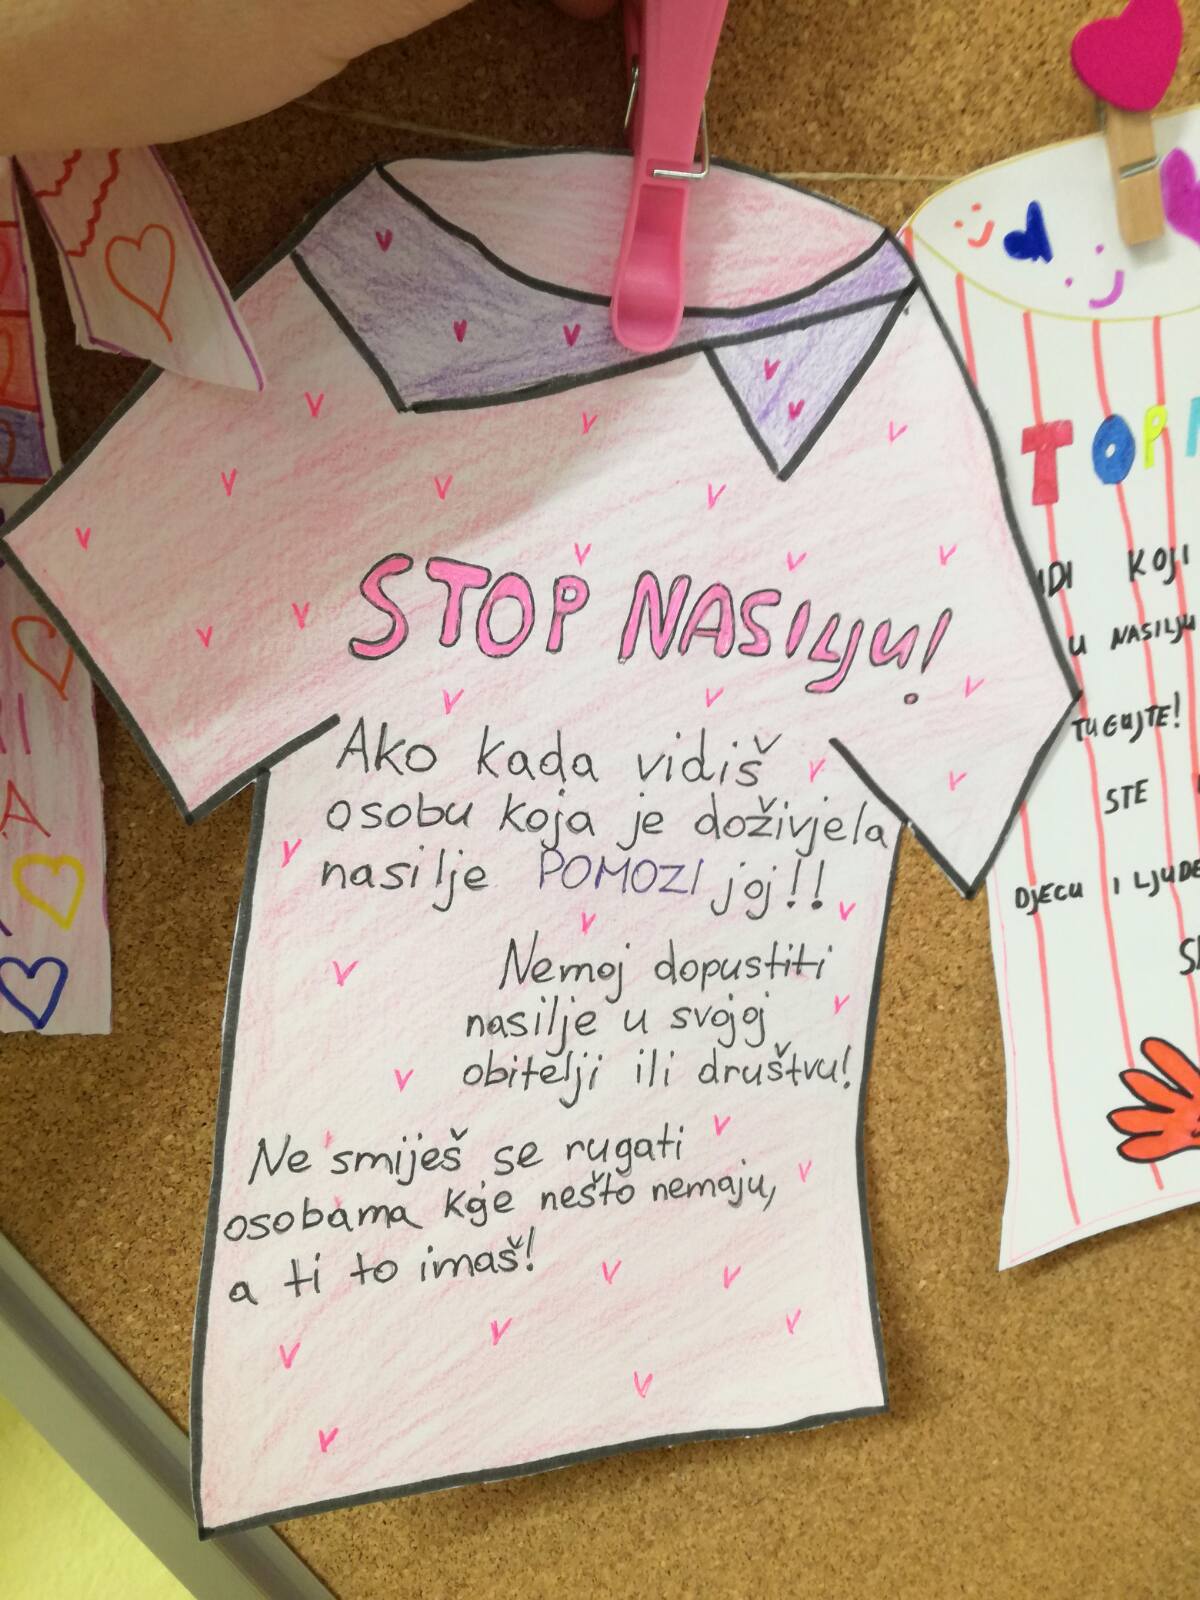 STOP NASILJU!
Ako kada vidiš
osobu koja je doživjela
nasilje POMOZI joj!!
Nemoj dopustiti
nasilje u svojoj
obitelji ili društvu!
Ne smiješ se rugati
osobama koje nešto nemaju,
a ti to imaš!
TOP
KOJI
U NASILJU
TUGUJTE!
STE
DJECU I LJUDE